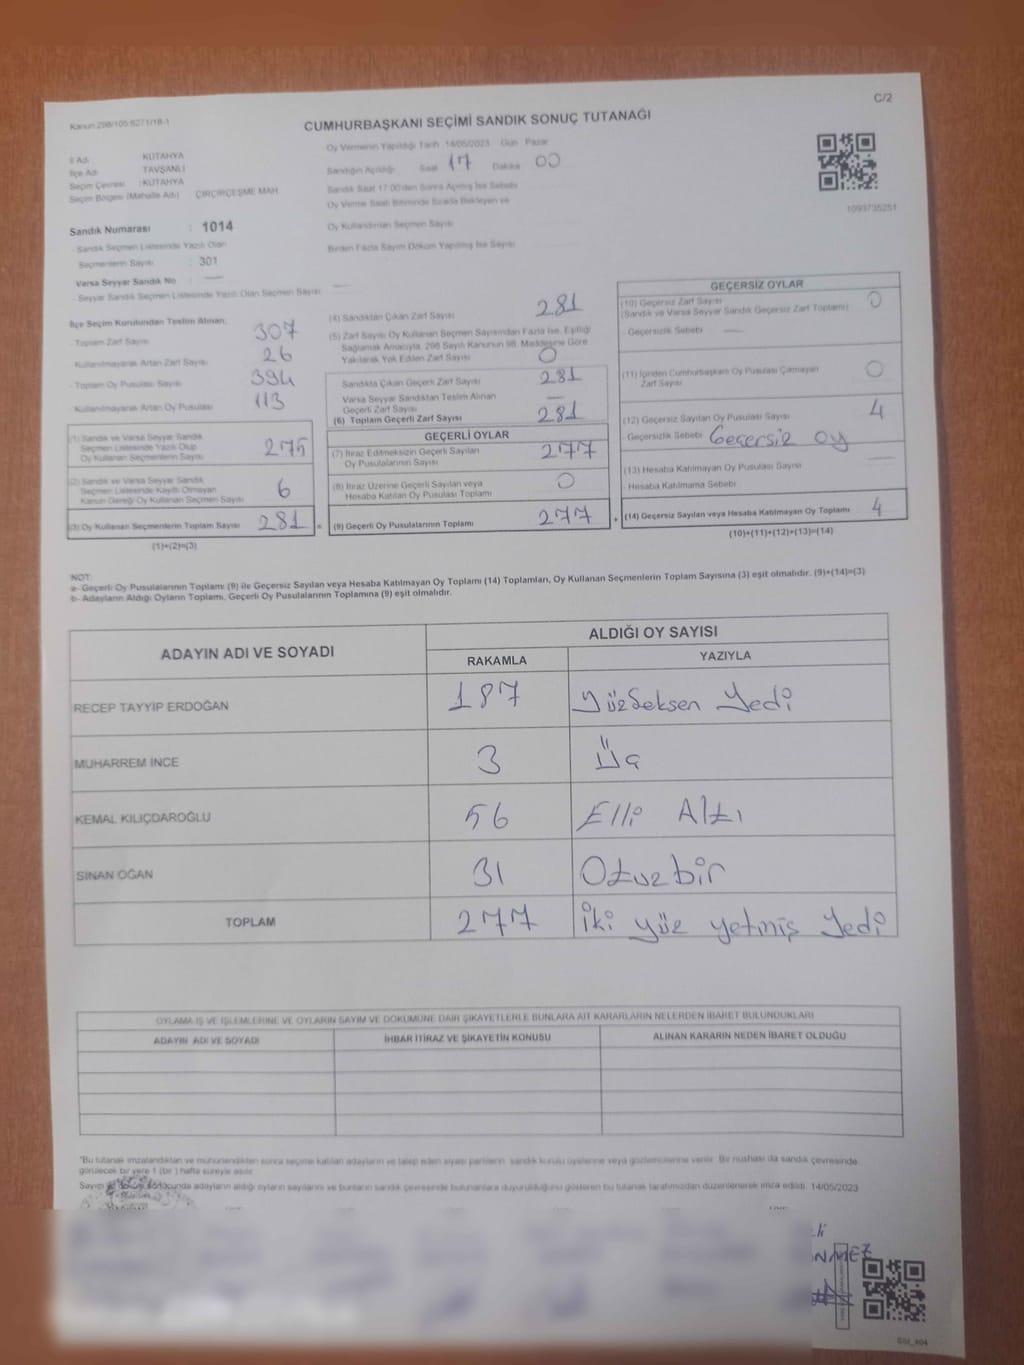 C/2
Kanun:298/105 6271/18-1
CUMHURBAŞKANI SEÇİMİ SANDIK SONUÇ TUTANAĞI
İl Adı : KÜTAHYA
İlçe Adı : TAVŞANLI
Seçim Çevresi : KÜTAHYA
Seçim Bölgesi (Mahalle Adı) : ÇIRÇIRÇEŞME MAH.
Sandık Numarası : 1014
- Sandık Seçmen Listesinde Yazılı Olan
Seçmenlerin Sayısı : 301
Varsa Seyyar Sandık No : —
- Seyyar Sandık Seçmen Listesinde Yazılı Olan Seçmen Sayısı : —
Oy Vermenin Yapıldığı Tarih 14/05/2023 Gün Pazar
Sandığın Açıldığı Saat 17 Dakika 00
Sandık Saat 17:00'den Sonra Açılmış İse Sebebi
Oy Verme Saati Bitiminde Sırada Bekleyen ve
Oy Kullandırılan Seçmen Sayısı
Birden Fazla Sayım Döküm Yapılmış İse Sayısı
1093735251
İlçe Seçim Kurulundan Teslim Alınan;
- Toplam Zarf Sayısı 307
- Kullanılmayarak Artan Zarf Sayısı 26
- Toplam Oy Pusulası Sayısı 394
- Kullanılmayarak Artan Oy Pusulası 113
(1) Sandık ve Varsa Seyyar Sandık
Seçmen Listesinde Yazılı Olup
Oy Kullanan Seçmenlerin Sayısı 275
(2) Sandık ve Varsa Seyyar Sandık
Seçmen Listesinde Kayıtlı Olmayan
Kanun Gereği Oy Kullanan Seçmen Sayısı 6
(3) Oy Kullanan Seçmenlerin Toplam Sayısı 281
(1)+(2)=(3)
(4) Sandıktan Çıkan Zarf Sayısı 281
(5) Zarf Sayısı Oy Kullanan Seçmen Sayısından Fazla İse, Eşitliği
Sağlamak Amacıyla, 298 Sayılı Kanunun 98. Maddesine Göre
Yakılarak Yok Edilen Zarf Sayısı 0
Sandıkta Çıkan Geçerli Zarf Sayısı 281
Varsa Seyyar Sandıktan Teslim Alınan
Geçerli Zarf Sayısı —
(6) Toplam Geçerli Zarf Sayısı 281
GEÇERLİ OYLAR
(7) İtiraz Edilmeksizin Geçerli Sayılan
Oy Pusulalarının Sayısı 277
(8) İtiraz Üzerine Geçerli Sayılan veya
Hesaba Katılan Oy Pusulası Toplamı 0
(9) Geçerli Oy Pusulalarının Toplamı 277
GEÇERSİZ OYLAR
(10) Geçersiz Zarf Sayısı
(Sandık ve Varsa Seyyar Sandık Geçersiz Zarf Toplamı) 0
- Geçersizlik Sebebi —
(11) İçinden Cumhurbaşkanı Oy Pusulası Çıkmayan
Zarf Sayısı 0
(12) Geçersiz Sayılan Oy Pusulası Sayısı 4
- Geçersizlik Sebebi Geçersiz oy
(13) Hesaba Katılmayan Oy Pusulası Sayısı —
- Hesaba Katılmama Sebebi
(14) Geçersiz Sayılan veya Hesaba Katılmayan Oy Toplamı 4
(10)+(11)+(12)+(13)=(14)
NOT:
a- Geçerli Oy Pusulalarının Toplamı (9) ile Geçersiz Sayılan veya Hesaba Katılmayan Oy Toplamı (14) Toplamları, Oy Kullanan Seçmenlerin Toplam Sayısına (3) eşit olmalıdır. (9)+(14)=(3)
b- Adayların Aldığı Oyların Toplamı, Geçerli Oy Pusulalarının Toplamına (9) eşit olmalıdır.
ADAYIN ADI VE SOYADI ALDIĞI OY SAYISI
RAKAMLA YAZIYLA
RECEP TAYYİP ERDOĞAN 187 Yüzseksen Yedi
MUHARREM İNCE 3 Üç
KEMAL KILIÇDAROĞLU 56 Elli Altı
SİNAN OĞAN 31 Otuzbir
TOPLAM 277 İki yüz yetmiş Yedi
OYLAMA İŞ VE İŞLEMLERİNE VE OYLARIN SAYIM VE DÖKÜMÜNE DAİR ŞİKAYETLERLE BUNLARA AİT KARARLARIN NELERDEN İBARET BULUNDUKLARI
ADAYIN ADI VE SOYADI İHBAR İTİRAZ VE ŞİKAYETİN KONUSU ALINAN KARARIN NEDEN İBARET OLDUĞU
*Bu tutanak imzalandıktan ve mühürlendikten sonra seçime katılan adayların ve talep eden siyasi partilerin sandık kurulu üyelerine veya gözlemcilerine verilir. Bir nüshası da sandık çevresinde
görülecek bir yere 1 (bir) hafta süreyle asılır.
Sayım ve döküm sonucunda adayların aldığı oyların sayılarını ve bunların sandık çevresinde bulunanlara duyurulduğunu gösteren bu tutanak tarafımızdan düzenlenerek imza edildi. 14/05/2023